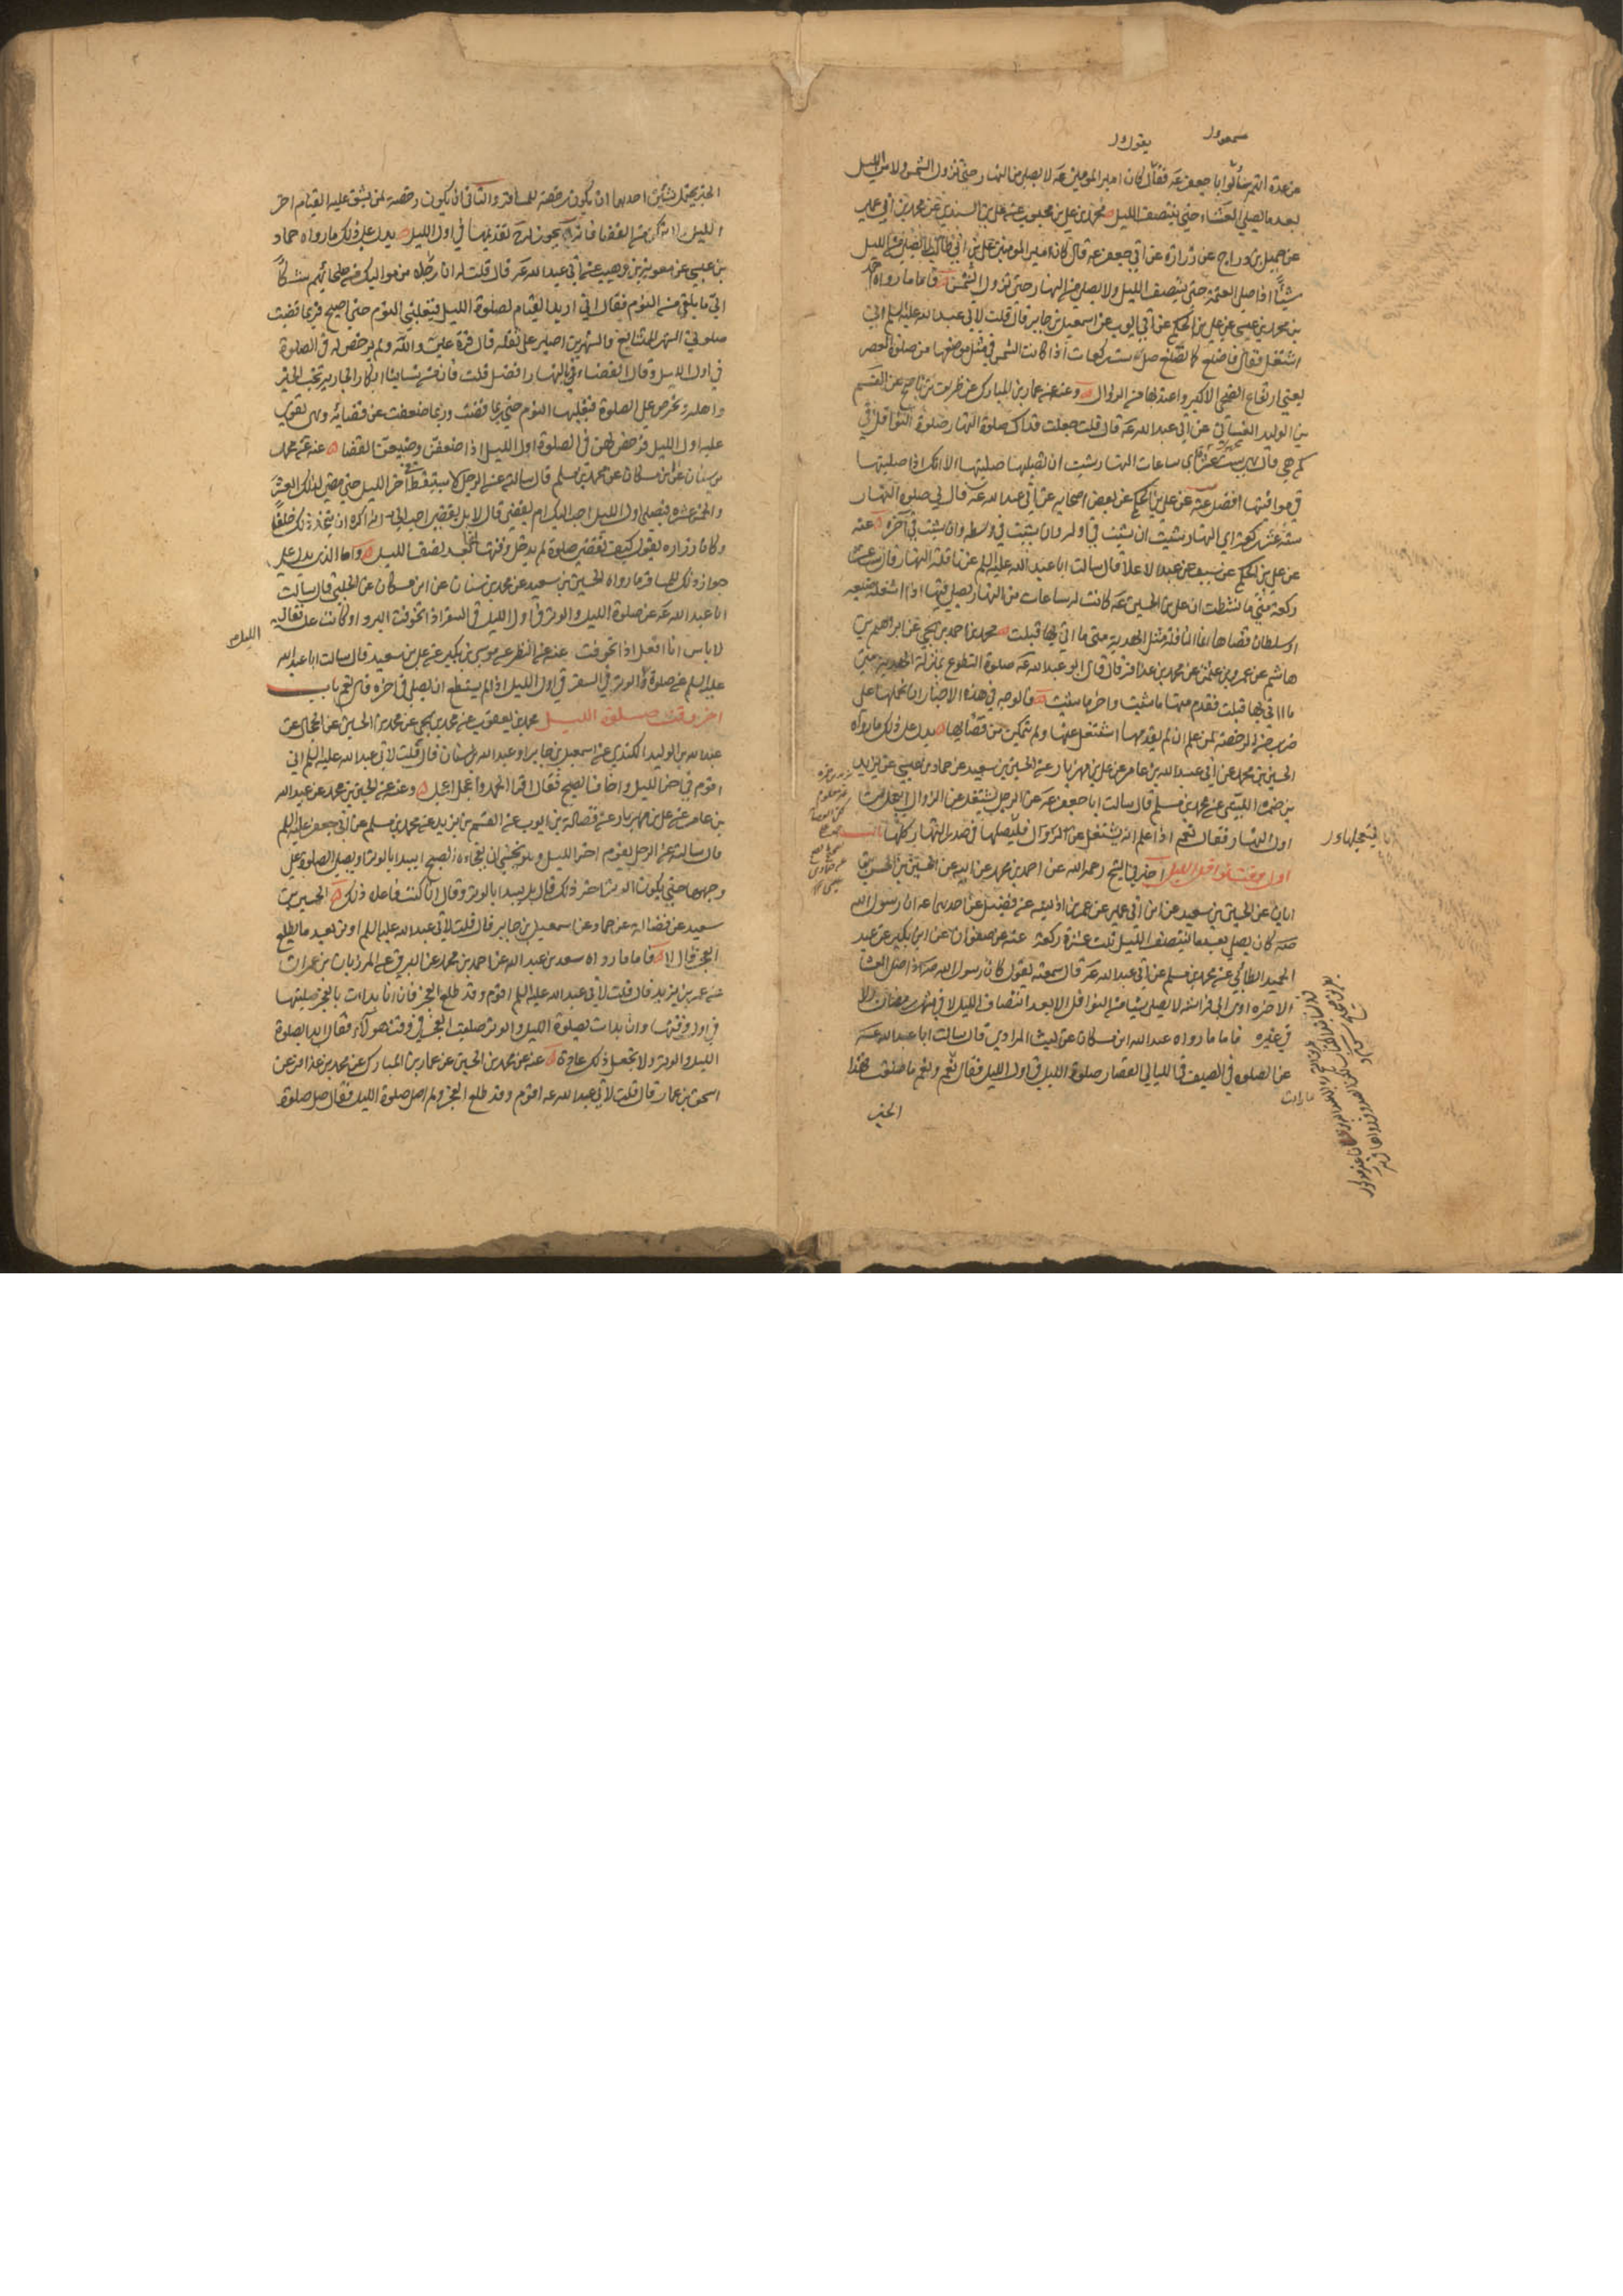 سمعوا
يقول
عن عدة انهم سألوا ابا جعفر عه فقال كان امير المومنين عه لا يصلي من النهار حتى تزول الشمس ولا من الليل
بعد ما يصلي العشاء حتى ينتصف الليل محمد بن علي بن محبوب عن علي بن السندي عن محمد بن ابي عمير
عن جميل بن دراج عن زرارة عن ابي جعفر عه قال كان امير المومنين علي بن ابي طالب لا يصلي من الليل
شيئا اذا صلى العتمة حتى ينتصف الليل ولا يصلي من النهار حتى تزول الشمس فاما ما رواه احمد
بن محمد بن عيسى عن علي بن الحكم عن ابي ايوب عن اسمعيل بن جابر قال قلت لابي عبد الله عليه السلم اني
اشتغل فقال فاصنع كما نصنع صل ست ركعات اذا كانت الشمس في مثل موضعها من صلوة العصر
يعني ارتفاع الضحى الاكبر واعتد بها من الزوال وعنه عن عمار بن المبارك عن ظريف بن ناصح عن القسم
بن الوليد الغساني عن ابي عبد الله عه قال قلت جعلت فداك صلوة النهار صلوة النوافل في
كم هي قال ست عشرة اي ساعات النهار شيت ان تصليها صليتها الا انك اذا صليتها
في مواقيتها افضل عنه عن علي بن الحكم عن بعض اصحابه عن ابي عبد الله عه قال في صلوة النهار
ستة عشر ركعة اي النهار شيت ان شيت في اوله وان شيت في وسطه وان شيت في آخره عنه
عن علي بن الحكم عن سيف عن عبد الاعلا قال سالت ابا عبد الله عليه السلم عن نافلة النهار قال ست عشرة
ركعة متى ما نشطت ان علي بن الحسين عه كانت له ساعات من النهار يصلي فيها اذا اشغله ضيعه
او سلطان قضاها انما النافلة مثل الهدية متى ما اتي بها قبلت محمد بن احمد بن يحيى عن ابراهيم بن
هاشم عن عمرو بن عثمن عن محمد بن عذافر قال قال ابو عبد الله عه صلوة التطوع بمنزلة الهدية متى
ما اتي بها قبلت فقدم منها ما شيت واخر ما شيت فالوجه في هذه الاخبار ان نحملها على
ضرب من الرخصة لمن علم ان لم يقدمها اشتغل عنها ولم يتمكن من قضائها يدل على ذلك ما رواه
الحسين بن محمد عن عبد الله بن عامر عن علي بن مهزيار عن الحسين بن سعيد عن حماد بن عيسى عن يزيد
بن ضمرة الليثي عن محمد بن مسلم قال سالت ابا جعفر عه عن الرجل يشتغل عن الزوال ايعجل من
اول النهار فقال نعم اذا علم انه يشتغل عن الزوال فليصلها في صدر النهار كلها باب
فيتعجلها
اول وقت نوافل الليل اخبرني الشيخ رحمه الله عن احمد بن محمد عن ابيه عن الحسين بن الحسن بن
ابان عن الحسين بن سعيد عن ابن ابي عمير عن عمر بن اذينه عن فضيل عن احدهما عه ان رسول الله
صه كان يصلي بعد ما ينتصف الليل ثلث عشرة ركعة عنه عن صفوان عن ابن بكير عن عبد
الحميد الطائي عن محمد بن مسلم عن ابي عبد الله عه قال سمعته يقول كان رسول الله صه اذا صلى العشا
الاخرة اوى الى فراشه لا يصلي شيا من النوافل الا بعد انتصاف الليل لا في شهر رمضان ولا
في غيره فاما ما رواه عبد الله ابن مسكان عن ليث المرادي قال سالت ابا عبد الله عه
عن الصلوة في الصيف في الليالي القصار صلوة الليل في اول الليل فقال نعم ونعم ما صنعت فهذا
ما رايت
الخبر
الخبر يحتمل شيئين احدهما ان يكون رخصة للمسافر والثاني ان يكون رخصة لمن يشق عليه القيام اخر
الليل ولا يتمكن من القضا فانه يجوز له ح تقديمها في اول الليل يدل على ذلك ما رواه حماد
بن عيسى عن معوية بن وهب عن ابي عبد الله عه قال قلت له ان رجلا من مواليك من صلحائهم شكا
الي ما يلقى من النوم فقال اني اريد القيام لصلوة الليل فيغلبني النوم حتى اصبح فربما قضيت
صلوتي الشهر المتتابع والشهرين اصبر على ثقله قال قرة عين والله ولم يرخص له في الصلوة
في اول الليل وقال القضاء في النهار افضل قلت فان من نسائنا ابكار الجارية تحب الخير
واهله وتحرص على الصلوة فيغلبها النوم حتى ربما قضت وربما ضعفت عن قضائه وهي تقوى
عليه اول الليل فرخص لهن في الصلوة اول الليل اذا ضعفن وضيعن القضا عنه عن محمد
بن سنان عن ابن مسكان عن محمد بن مسلم قال سالته عن الرجل لا يستيقظ من آخر الليل حتى يمضي لذلك العشر
والخمس عشرة فيصلي اول الليل احب اليك ام يقضي قال لا بل يقضي احب الي اني اكره ان يتخذ ذلك خلقا
وكان زراره يقول كيف تقضى صلوة لم يدخل وقتها انما بعد نصف الليل واما الذي يدل على
جواز ذلك للمسافر ما رواه الحسين بن سعيد عن محمد بن سنان عن ابن مسكان عن الحلبي قال سالت
ابا عبد الله عه عن صلوة الليل والوتر في اول الليل في السفر اذا تخوفت البرد او كانت علة فقال
لا باس انا افعل اذا تخوفت عنه عن النضر عن موسى بن بكير عن علي بن سعيد قال سالت ابا عبد الله
الليل
عليه السلم عن صلوة والوتر في السفر في اول الليل اذا لم يستطع ان يصلي في اخره قال نعم باب
اخر وقت صلوة الليل محمد بن يعقوب عن محمد بن يحيى عن محمد بن الحسين عن الحجال عن
عبد الله بن الوليد الكندي عن اسمعيل بن جابر او عبد الله بن سنان قال قلت لابي عبد الله عليه السلم اني
اقوم في اخر الليل واخاف الصبح فقال اقرا الحمد واعجل اعجل وعنه عن الحسين بن محمد عن عبد الله
بن عامر عن علي بن مهزيار عن فضالة بن ايوب عن القسم بن يزيد عن محمد بن مسلم عن ابي جعفر عليه السلم
قال سالته عن الرجل يقوم اخر الليل وهو يخشى ان يفجاه الصبح ايبدا بالوتر او يصلي الصلوة على
وجهها حتى يكون الوتر اخر ذلك قال بل يبدا بالوتر وقال انا كنت فاعل ذلك الحسين بن
سعيد عن فضالة عن حماد عن اسمعيل بن جابر قال قلت لابي عبد الله عليه السلم اوتر بعد ما يطلع
الفجر قال لا فاما ما رواه سعد بن عبد الله عن احمد بن محمد عن البرقي عن المرزبان بن عمران
عن عمر بن يزيد قال قلت لابي عبد الله عليه السلم اقوم وقد طلع الفجر فان انا بدات بالفجر صليتها
في اول وقتها وان بدات بصلوة الليل والوتر صليت الفجر في وقت هولاء فقال ابدا بصلوة
الليل والوتر ولا تجعل ذلك عادة عنه عن محمد بن الحسين عن عمار بن المبارك عن محمد بن عذافر عن
اسحق بن عمار قال قلت لابي عبد الله عه اقوم وقد طلع الفجر ولم اصل صلوة الليل فقال صل صلوة